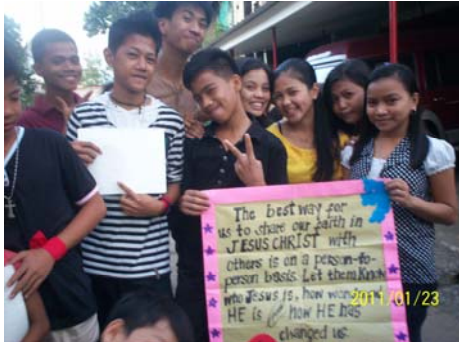 The best way for
us to share our faith in
JESUS CHRIST with
others is on a person-to-
person basis. Let them know
who Jesus is, how
HE is how HE has
changed us.
2011/01/23